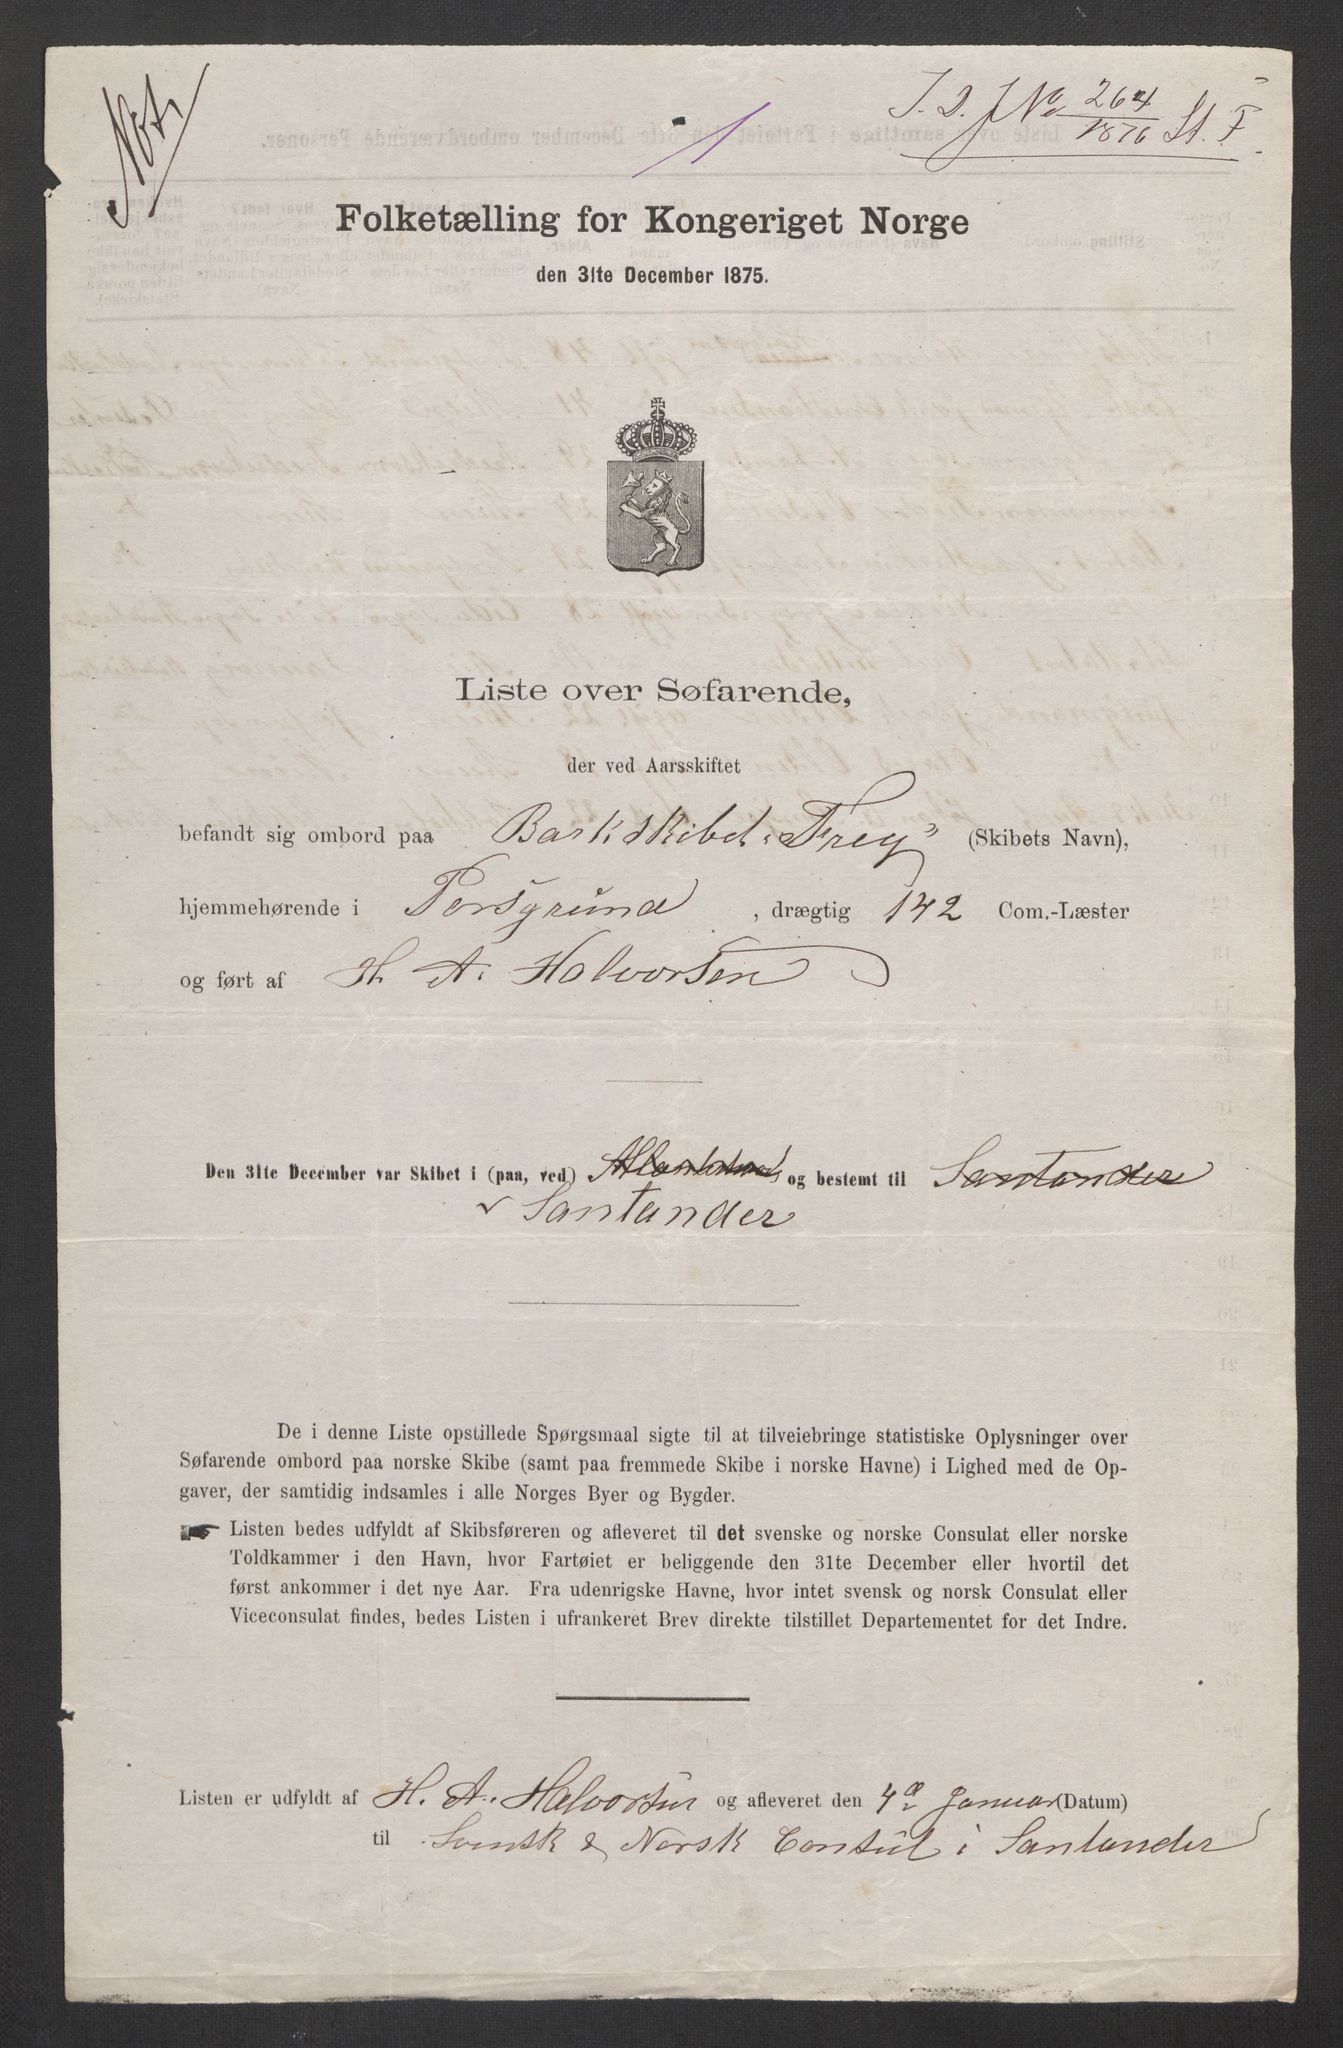 Not.
I. D. J No 264/1876 St. F.
1
Folketælling for Kongeriget Norge
den 31te December 1875.
Liste over Søfarende,
der ved Aarsskiftet
befandt sig ombord paa Barkskibet „Frey" (Skibets Navn),
hjemmehørende i Porsgrund, drægtig 142 Com.-Læster
og ført af H. A. Halvorsen
Den 31te December var Skibet i (paa, ved) og bestemt til Santander
Santander
De i denne Liste opstillede Spørgsmaal sigte til at tilveiebringe statistiske Oplysninger over
Søfarende ombord paa norske Skibe (samt paa fremmede Skibe i norske Havne) i Lighed med de Op-
gaver, der samtidig indsamles i alle Norges Byer og Bygder.
Listen bedes udfyldt af Skibsføreren og afleveret til det svenske og norske Consulat eller norske
Toldkammer i den Havn, hvor Fartøiet er beliggende den 31te December eller hvortil det
først ankommer i det nye Aar. Fra udenrigske Havne, hvor intet svensk og norsk Consulat eller
Viceconsulat findes, bedes Listen i ufrankeret Brev direkte tilstillet Departementet for det Indre.
Listen er udfyldt af H. A. Halvorsen og afleveret den 4de Januar (Datum)
til Svensk & Norsk Consul i Santander